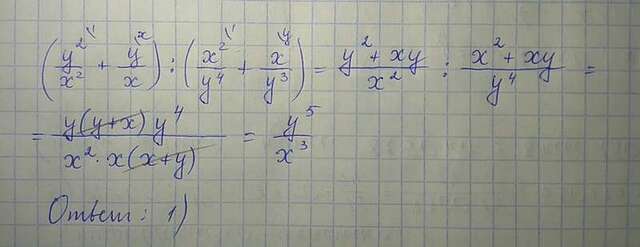 (y²/x² + y/x) : (x²/y⁴ + x/y³) = (y² + xy)/x² : (x² + xy)/y⁴ =
= y(y+x) y⁴ / x² · x(x+y) = y⁵/x³
Ответ: 1)